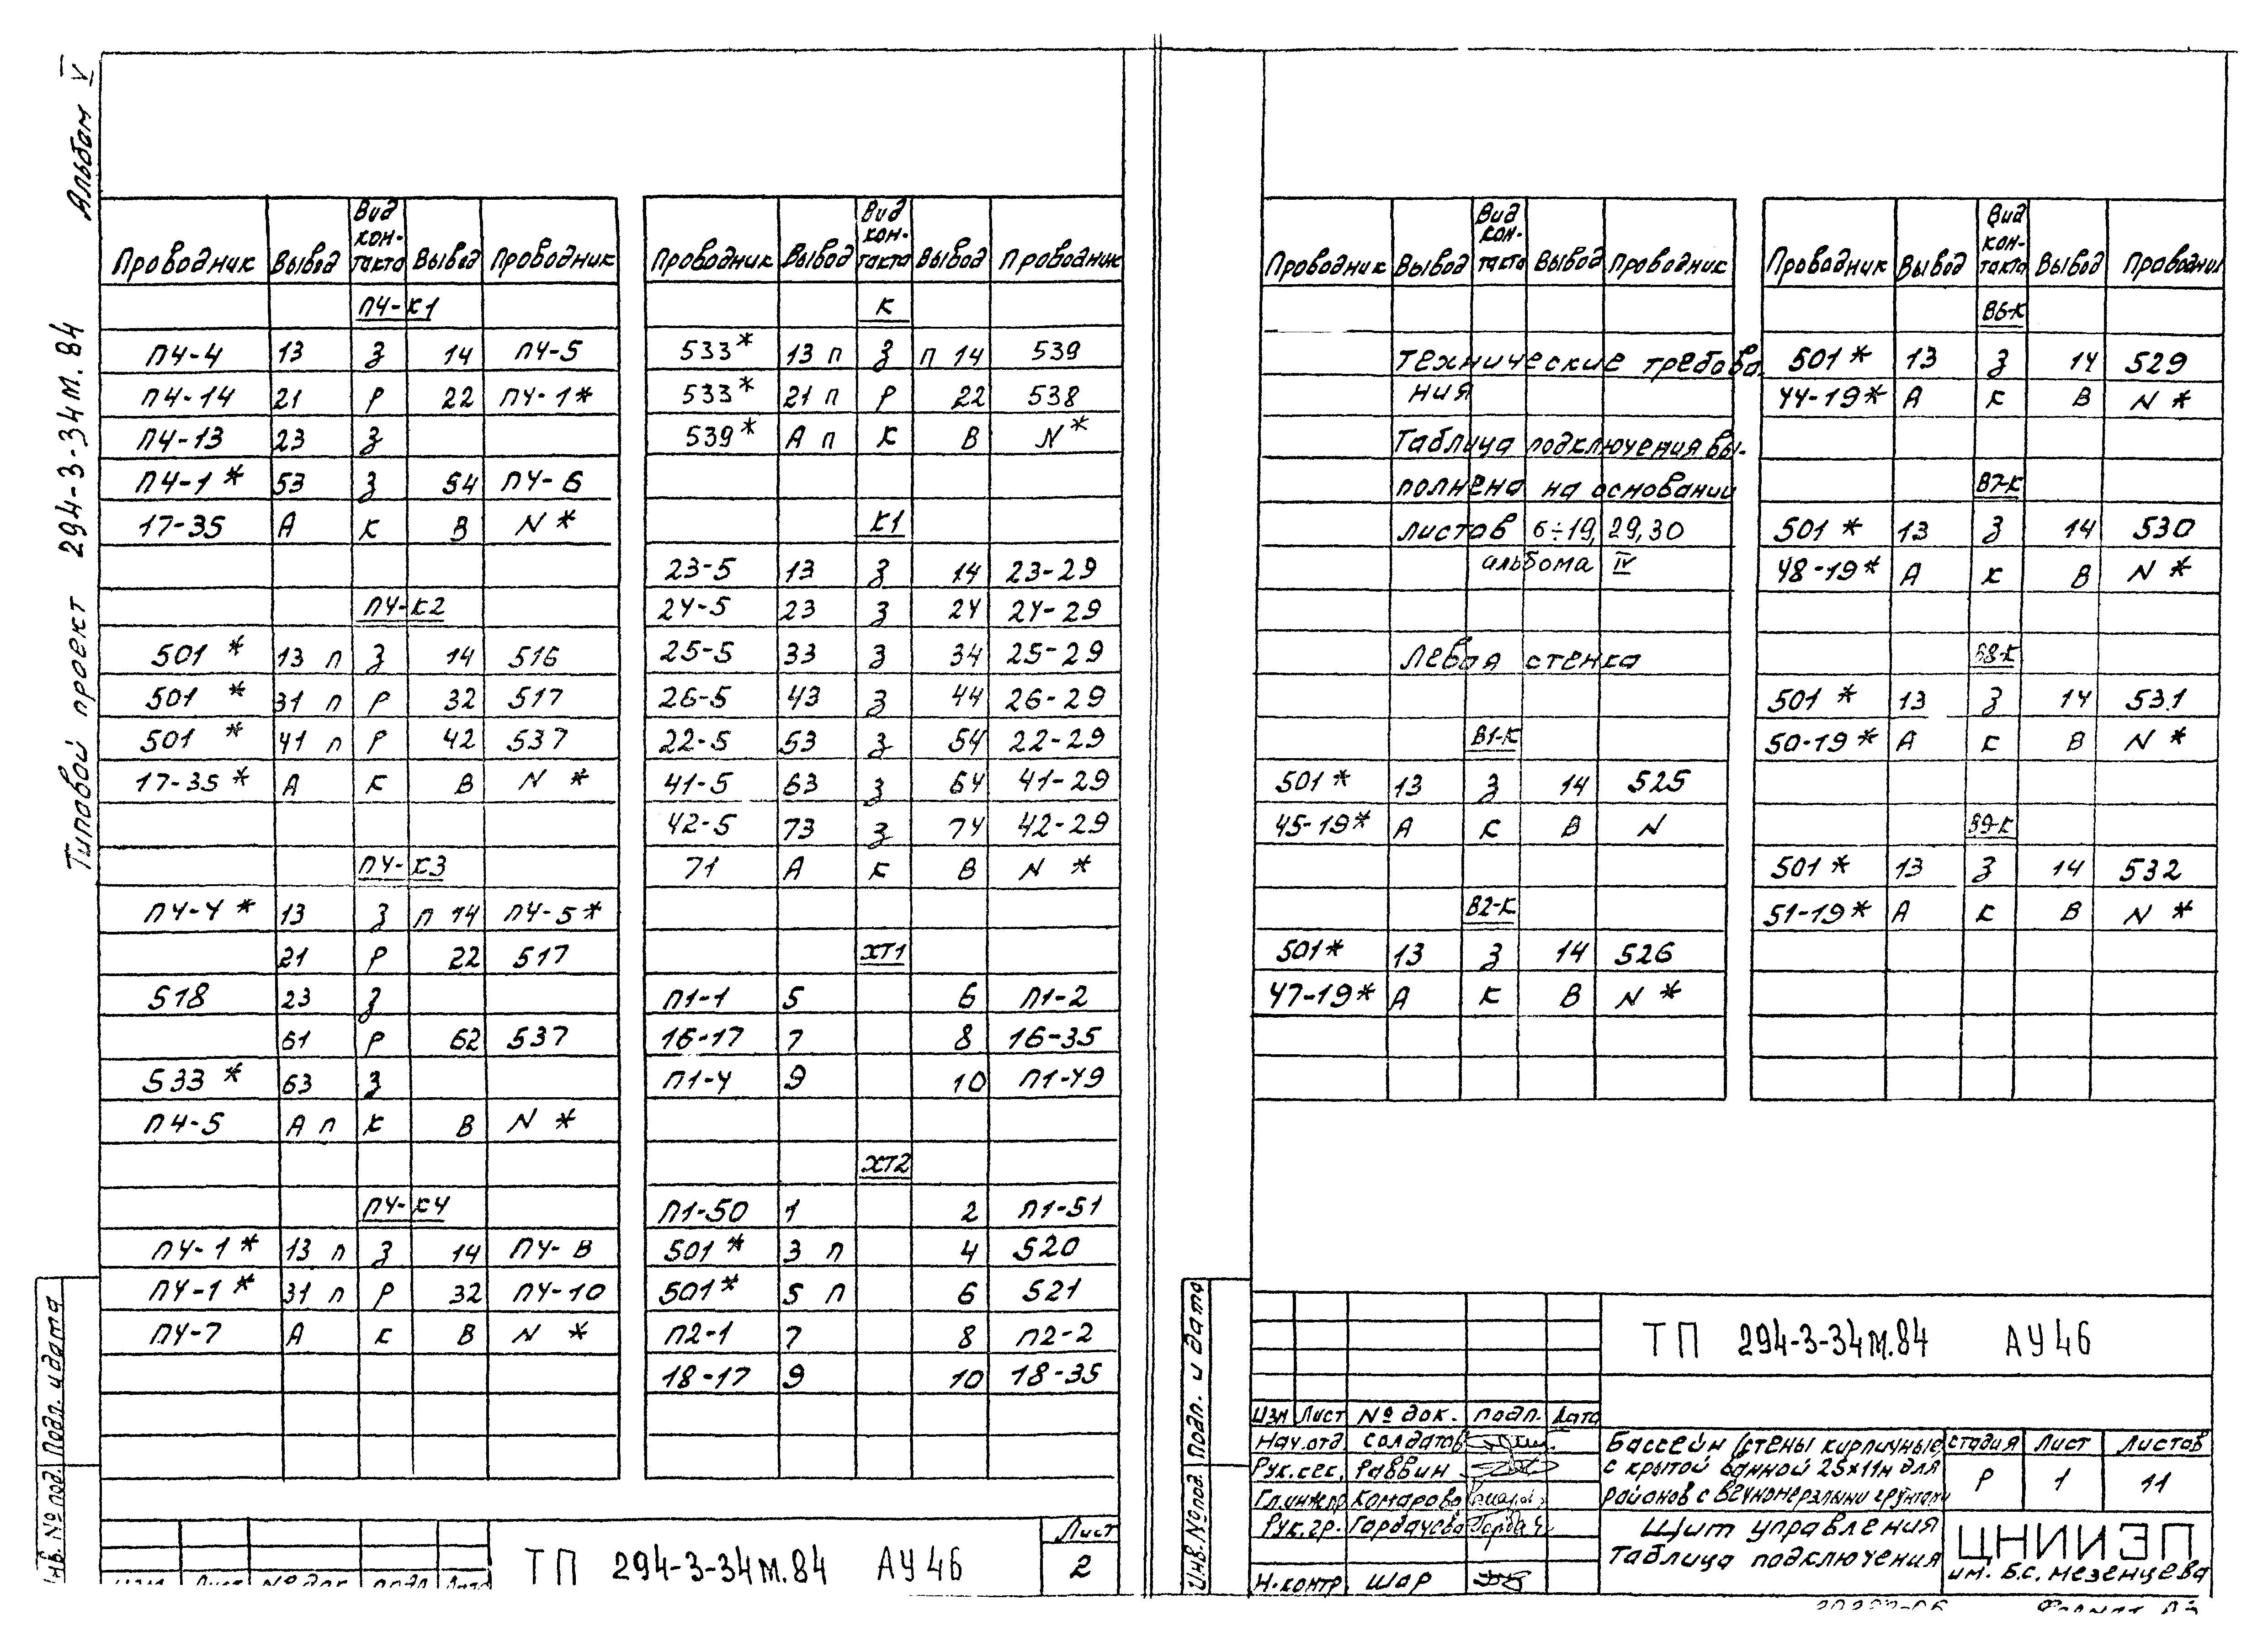 Альбом V
Типовой проект 294-3-34м.84
Проводник Вывод Вид кон-такта Вывод Проводник
П4-К1
П4-4 13 З 14 П4-5
П4-14 21 Р 22 П4-1*
П4-13 23 З
П4-1* 53 З 54 П4-6
17-35 А К В N*
П4-К2
501* 13 п З 14 516
501* 31 п Р 32 517
501* 41 п Р 42 537
17-35* А К В N*
П4-К3
П4-4* 13 З п 14 П4-5*
21 Р 22 517
518 23 З
61 Р 62 537
533* 63 З
П4-5 А п К В N*
П4-К4
П4-1* 13 п З 14 П4-В
П4-1* 31 п Р 32 П4-10
П4-7 А К В N*
Проводник Вывод Вид кон-такта Вывод Проводник
К
533* 13 п З п 14 539
533* 21 п Р 22 538
539* А п К В N*
К1
23-5 13 З 14 23-29
24-5 23 З 24 24-29
25-5 33 З 34 25-29
26-5 43 З 44 26-29
22-5 53 З 54 22-29
41-5 63 З 64 41-29
42-5 73 З 74 42-29
71 А К В N*
ХТ1
П1-1 5 6 П1-2
16-17 7 8 16-35
П1-4 9 10 П1-49
ХТ2
П1-50 1 2 П1-51
501* 3 п 4 520
501* 5 п 6 521
П2-1 7 8 П2-2
18-17 9 10 18-35
Инв.№под. Подп. и дата
Изм Лист № док. подп. Дата
ТП 294-3-34м.84 АУ46
Лист
2
Проводник Вывод Вид кон-такта Вывод Проводник
Технические требова-
ния
Таблица подключения вы-
полнена на основании
листов 6÷19, 29,30
альбома IV
Левая стенка
В1-К
501* 13 З 14 525
45-19* А К В N
В2-К
501* 13 З 14 526
47-19* А К В N*
Проводник Вывод Вид кон-такта Вывод Проводни
В6-К
501* 13 З 14 529
44-19* А К В N*
В7-К
501* 13 З 14 530
48-19* А К В N*
В8-К
501* 13 З 14 531
50-19* А К В N*
В9-К
501* 13 З 14 532
51-19* А К В N*
Инв.№под. Подп. и дата
ТП 294-3-34м.84 АУ46
Изм Лист № док. подп. Дата
Нач.отд Солдатов
Рук.сек. Раввин
Гл.инж.пр Комарово
Рук.гр. Гордачева
Н.контр Шар
Бассейн (стены кирпичные
с крытой ванной 25х11м для
районов с вечномерзлыми грунтами
Щит управления
Таблица подключения
стадия Лист Листов
Р 1 11
ЦНИИЭП
им. Б.С. Мезенцева
Формат А3